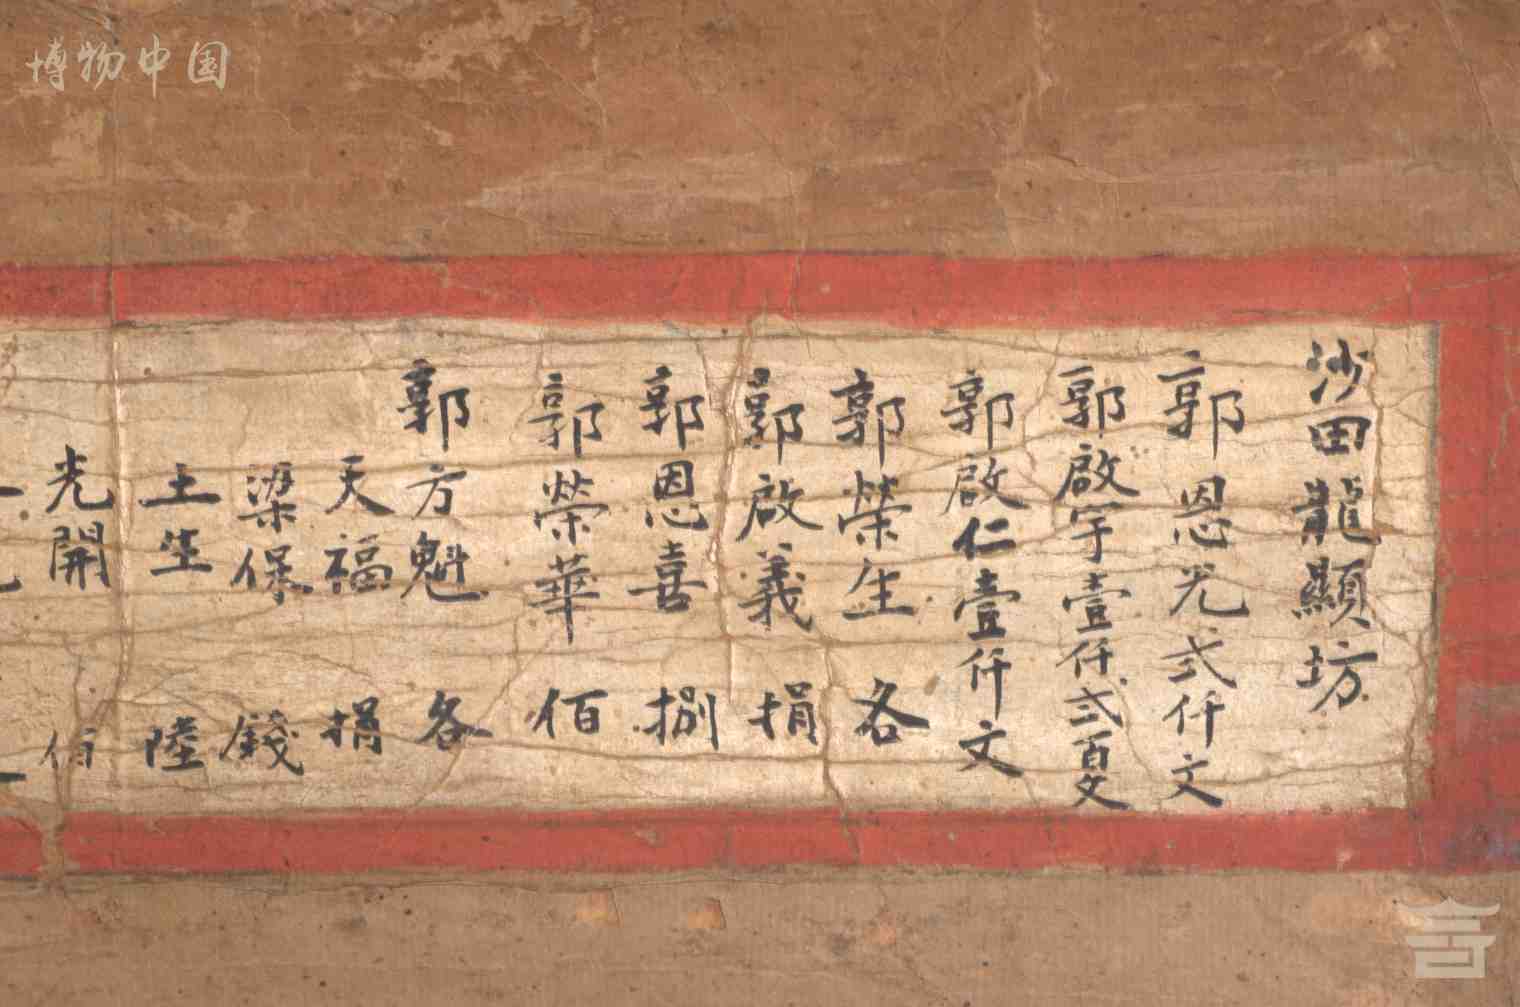 博物中国
沙田龍顯坊
郭恩光弍仟文
郭啟宇壹仟弍百文
郭啟仁壹仟文
郭榮生 各
郭啟義 捐
郭恩喜 捌
郭榮華 佰
郭方魁 各
天福 捐
梁保 錢
土生 陸
光開 佰